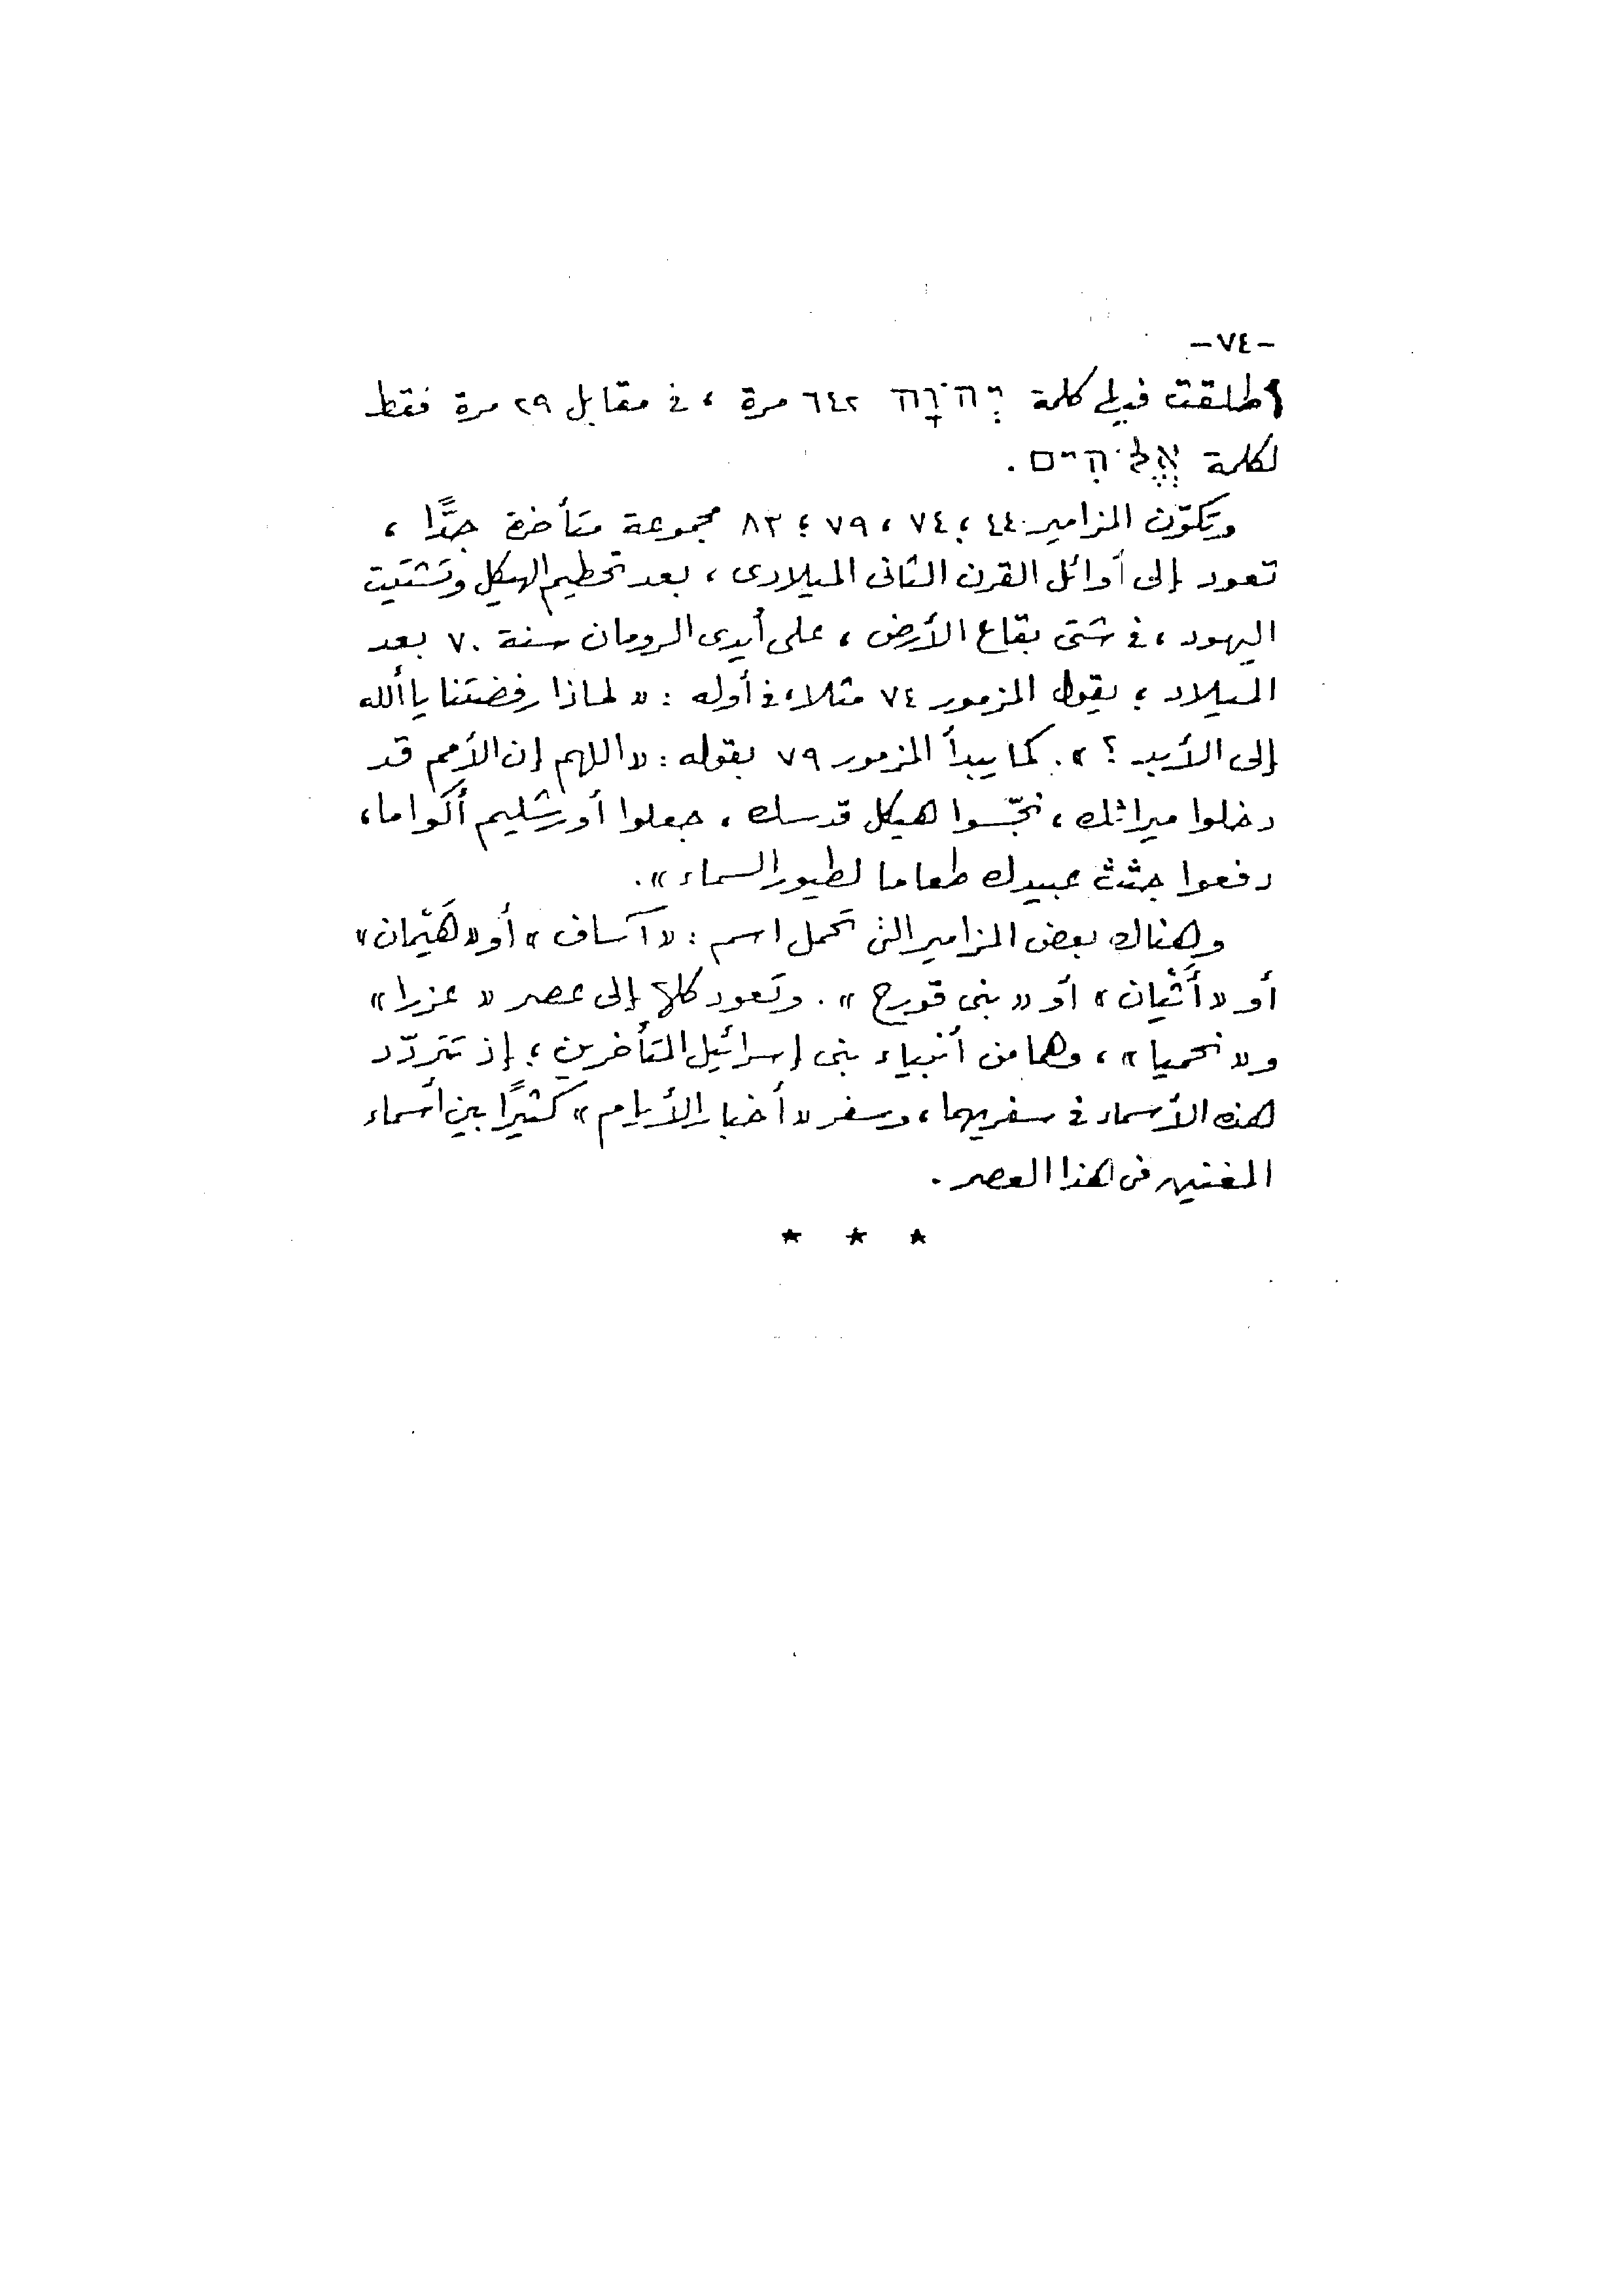 -٧٤-
أطلقت فيها كلمة יְהֹוָה ٦٤٢ مرة ، فى مقابل ٢٩ مرة فقط
لكلمة אֱלֹהִים .
وتكوّن المزامير ٤٤ ؛ ٧٤ ، ٧٩ ؛ ٨٣ مجموعة متأخرة جدًّا ،
تعود إلى أوائل القرن الثانى الميلادى ، بعد تحطيم الهيكل وتشتيت
اليهود ، فى شتى بقاع الأرض ، على أيدى الرومان سنة ٧٠ بعد
الميلاد ؛ يقول المزمور ٧٤ مثلا ، فى أوله : « لماذا رفضتنا يا ألله
إلى الأبد ؟ » . كما يبدأ المزمور ٧٩ بقوله : « اللهم إن الأمم قد
دخلوا ميراثك ، نجّسوا هيكل قدسك ، جعلوا أورشليم أكواما ،
دفعوا جثث عبيدك طعاما لطيور السماء » .
وهناك بعض المزامير التى تحمل اسم : « آساف » أو « هَيْمان »
أو « أَيْثان » أو « بنى قورح » . وتعود كلها إلى عصر « عزرا »
و « نحميا » ، وهما من أنبياء بنى إسرائيل المتأخرين ؛ إذ تتردّد
هذه الأسماء فى سفريهما ، وسفر « أخبار الأيام » كثيرًا بين أسماء
المغنين فى هذا العصر .
* * *